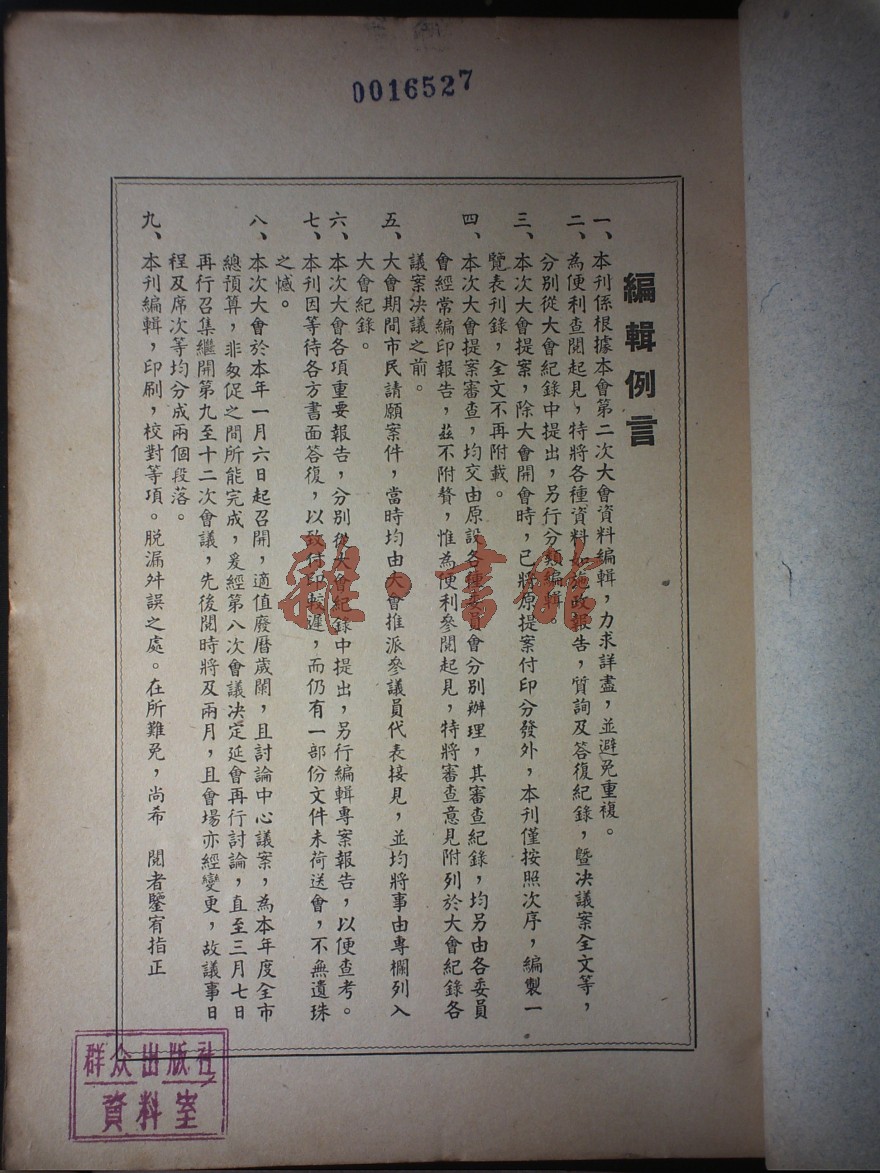 0016527
編輯例言
一、本刊係根據本會第二次大會資料編輯，力求詳盡，並避免重複。
二、為便利查閱起見，特將各種資料如施政報告，質詢及答復紀錄，暨決議案全文等，
分別從大會紀錄中提出，另行分類編輯。
三、本次大會提案，除大會開會時，已將原提案付印分發外，本刊僅按照次序，編製一
覽表刊錄，全文不再附載。
四、本次大會提案審查，均交由原設各種委員會分別辦理，其審查紀錄，均另由各委員
會經常編印報告，茲不附贅，惟為便利參閱起見，特將審查意見附列於大會紀錄各
議案決議之前。
五、大會期間市民請願案件，當時均由大會推派參議員代表接見，並均將事由專欄列入
大會紀錄。
六、本次大會各項重要報告，分別從大會紀錄中提出，另行編輯專案報告，以便查考。
七、本刊因等待各方書面答復，以致付印較遲，而仍有一部份文件未荷送會，不無遺珠
之憾。
八、本次大會於本年一月六日起召開，適值廢曆歲闌，且討論中心議案，為本年度全市
總預算，非匆促之間所能完成，爰經第八次會議決定延會再行討論，直至三月七日
再行召集繼開第九至十二次會議，先後閱時將及兩月，且會場亦經變更，故議事日
程及席次等均分成兩個段落。
九、本刊編輯，印刷，校對等項。脱漏舛誤之處。在所難免，尚希　閱者鑒宥指正
雜·書館
群众出版社
資料室